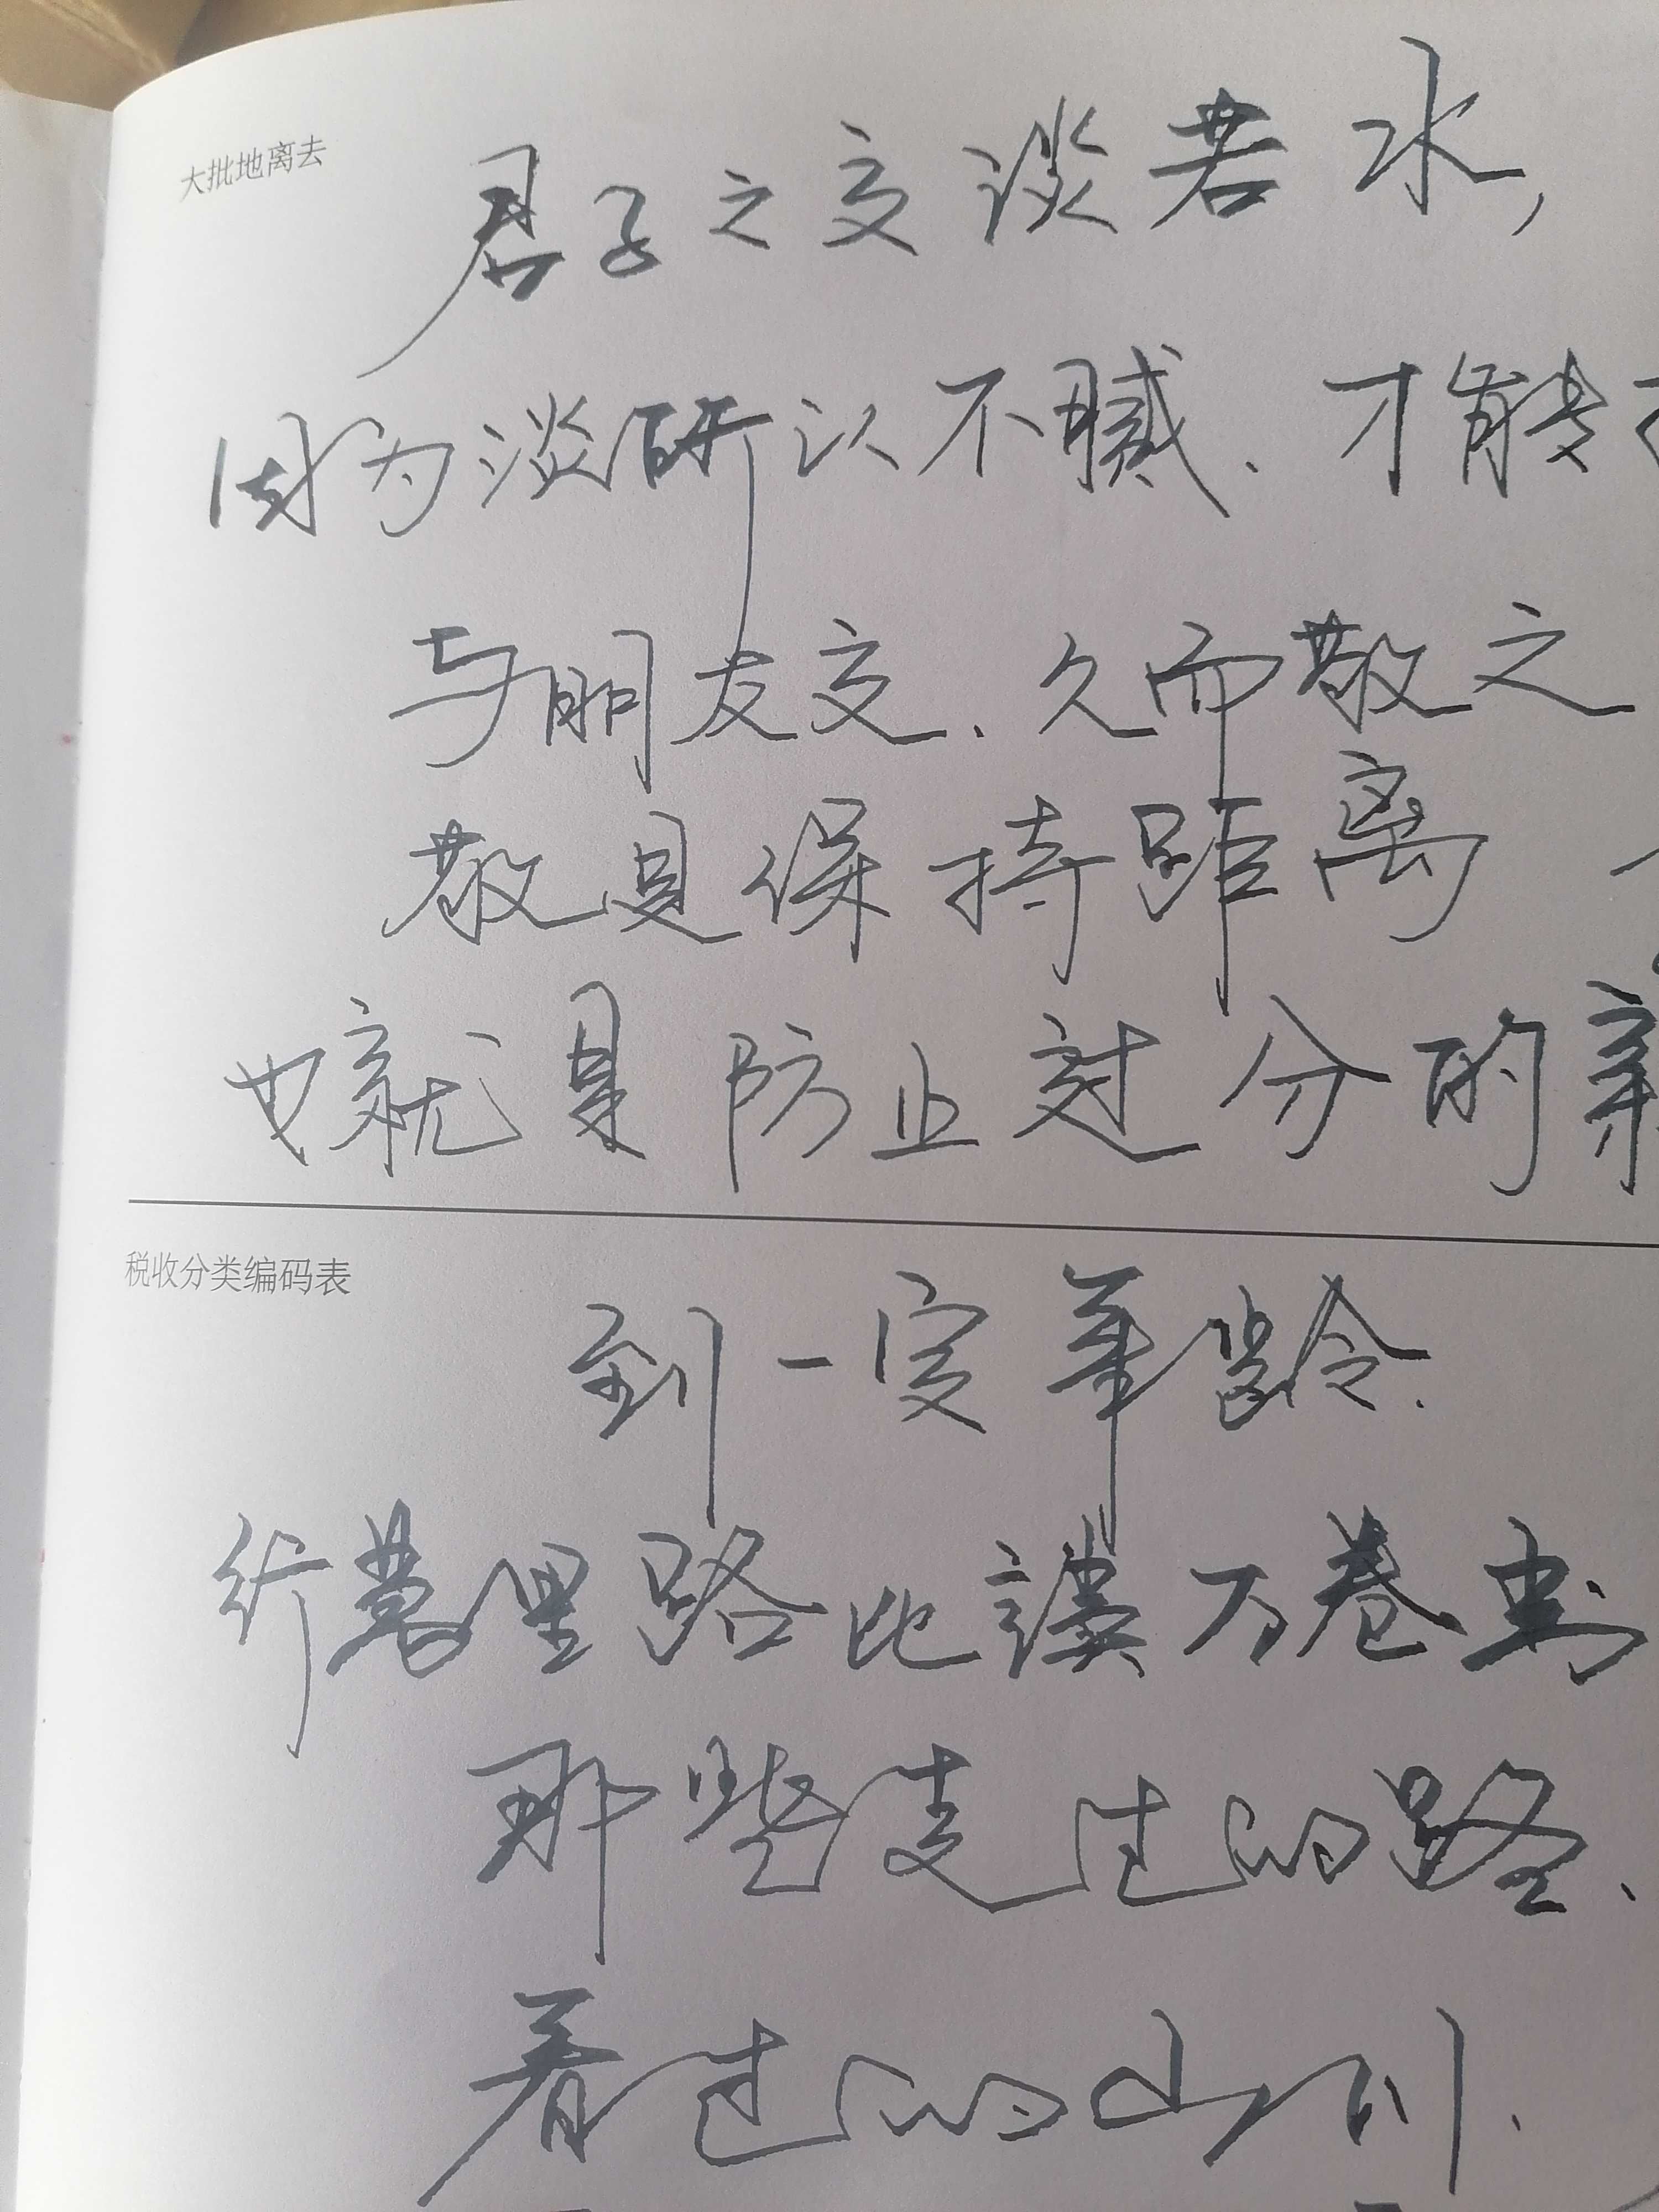 大批地离去
君子之交淡若水，
因为淡所以不腻．才能
与朋友交．久而敬之
敬是保持距离
也就是防止过分的亲
税收分类编码表
到一定年龄．
行萬里路比讀万卷书
那些走过的路、
看过的山川．